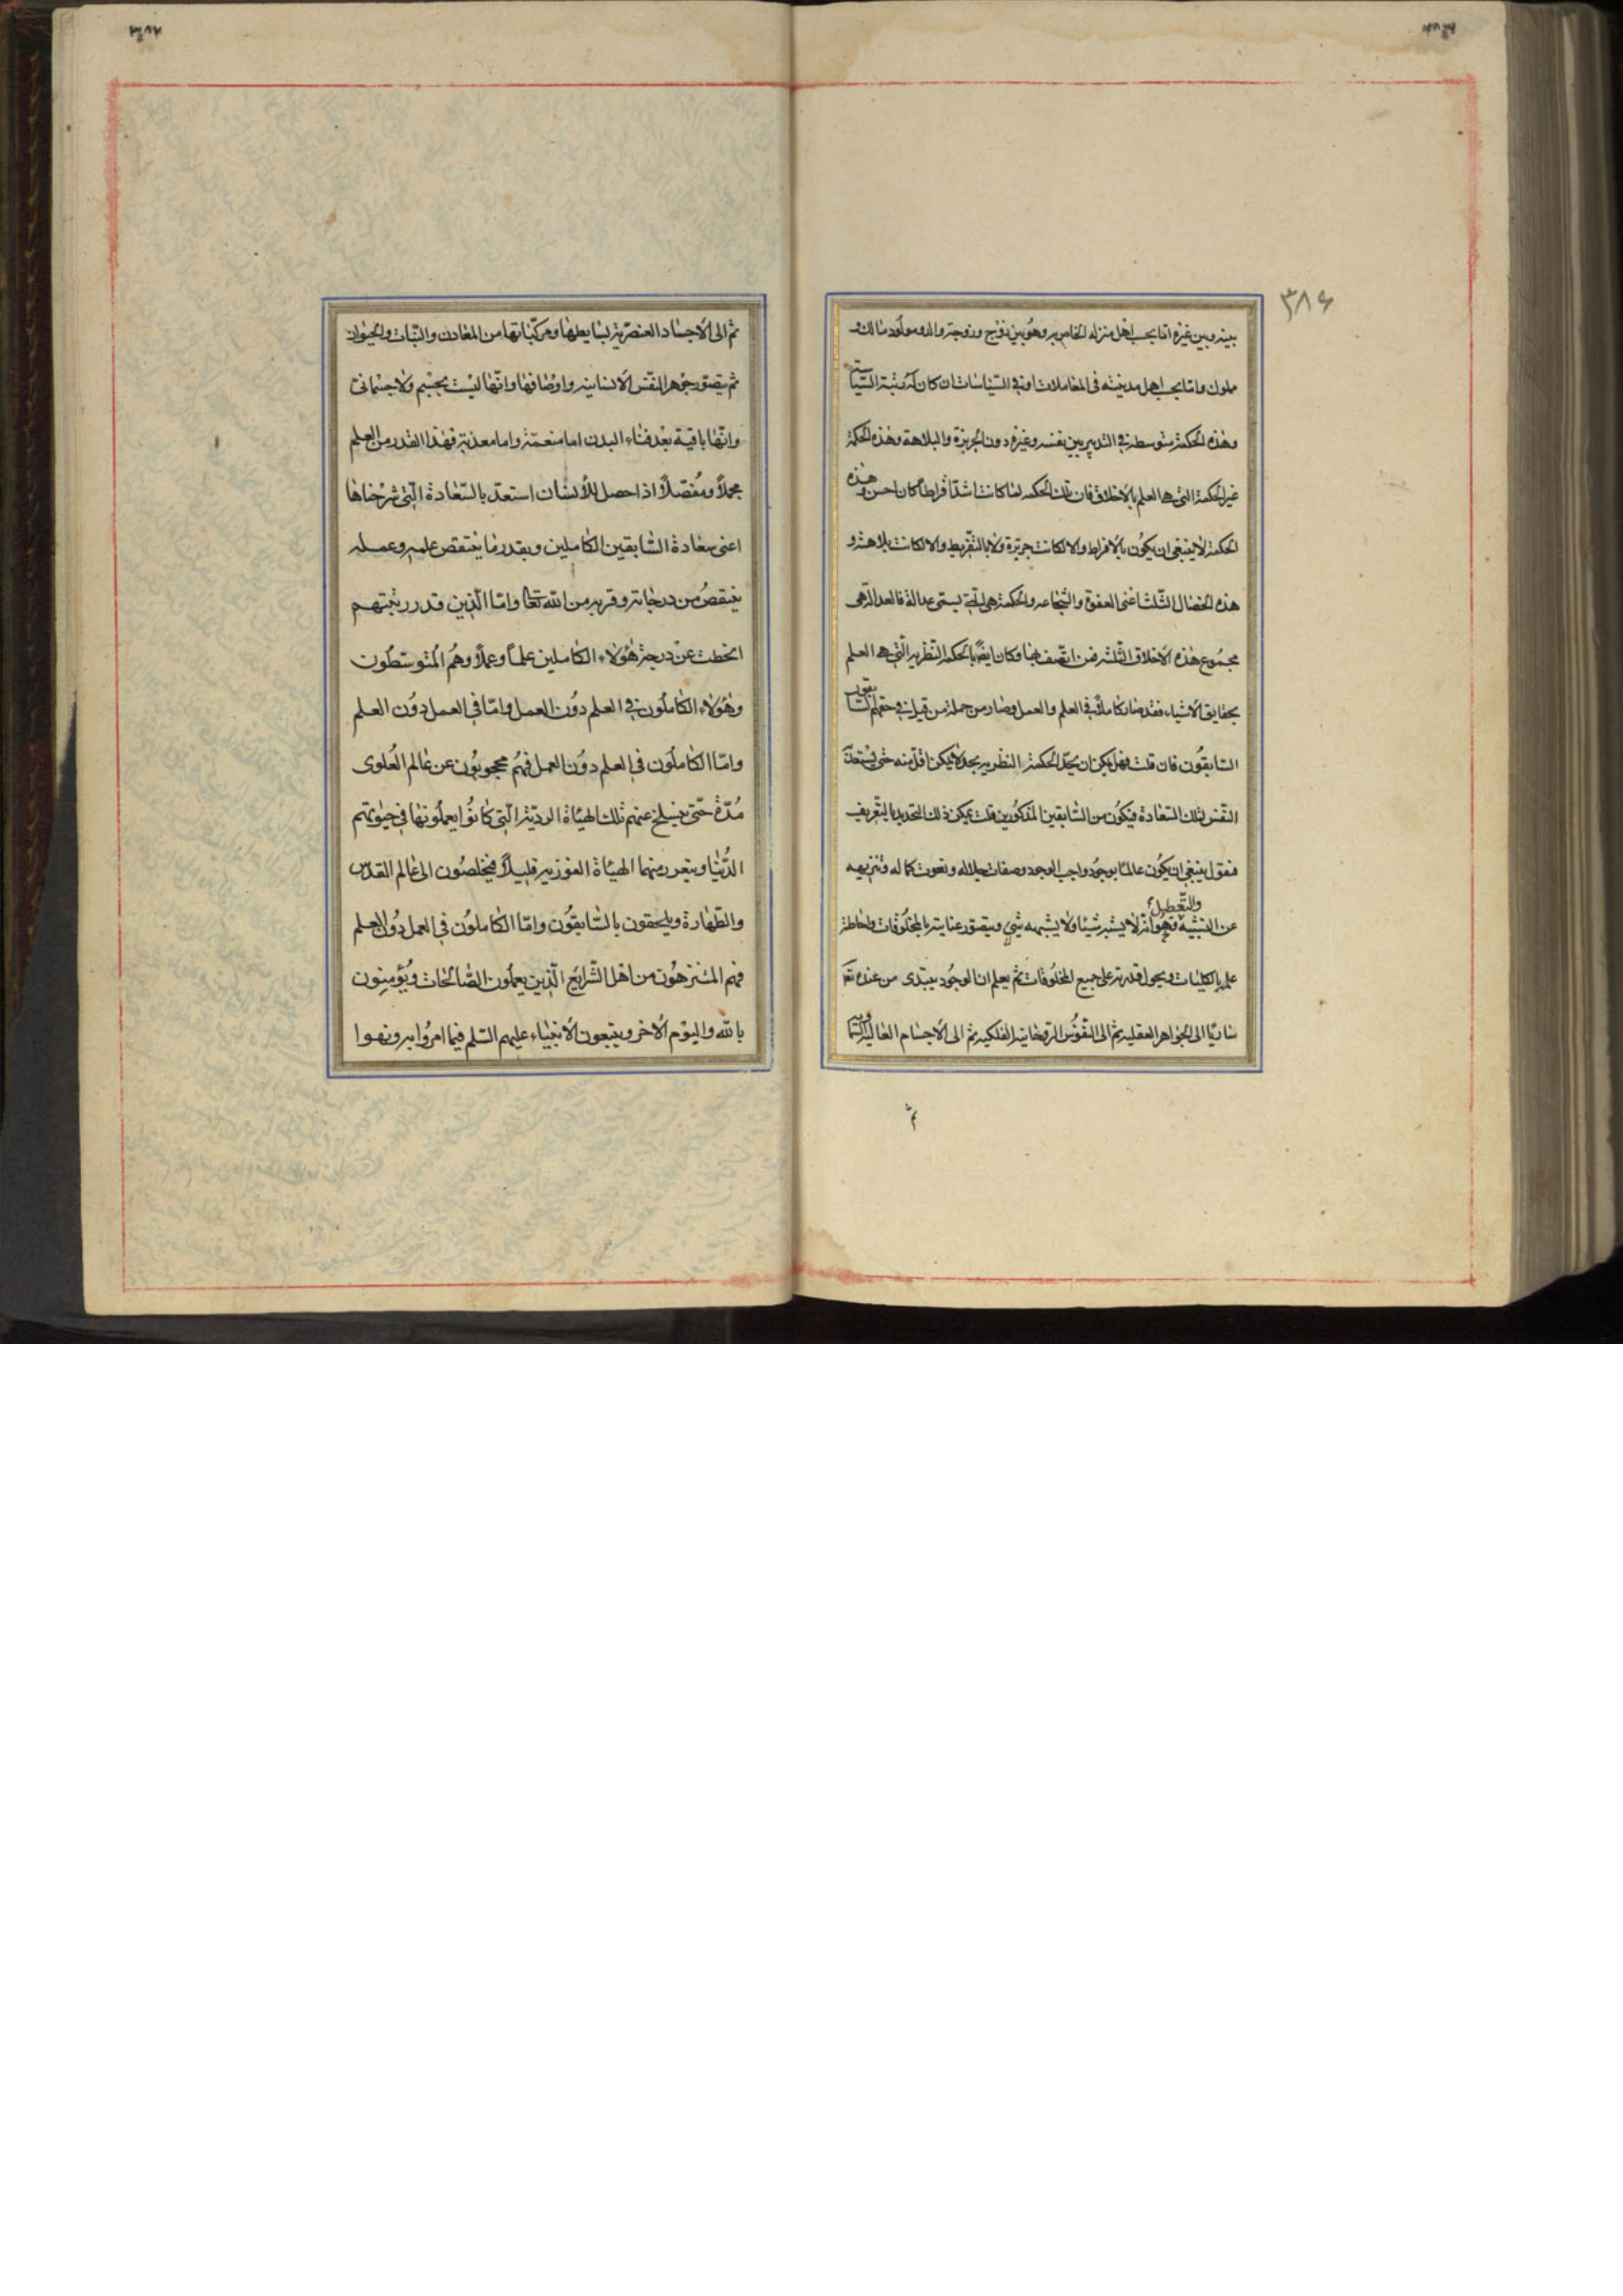 ٣٨٤
بينه وبين غيره اما بحسب اهل منزله الخاص به وهو بين زوج وزوجة ووالد ومولود ومالك و
مملوك واما بحسب اهل مدينته فى المعاملات او فى السياسات ان كان له رتبة السياسة
وهذه الحكمة متوسطة فى التدبير بين نفسه وغيره دون الجربزة والبلاهة وهذه الحكمة
غير الحكمة التى هى العلم بالاخلاق فان تلك الحكمة لما كانت اشد افراطا كان احسن وهذه
الحكمة لا ينبغى ان يكون بالافراط والا لكانت جربزة ولا بالتفريط والا لكانت بلاهة و
هذه الخصال الثلث اعنى العفة والشجاعه والحكمة هى التى يسمى عدالة فالعدالة هى
مجموع هذه الاخلاق الثلثه فمن اتصف بها وكان ايضا بالحكمة النظرية التى هى العلم
بحقايق الاشياء فقد صار كاملا فى العلم والعمل وصار من جملة من قيل فى حقهم السابقون
السابقون فان قلت فهل يمكن ان يحد الحكمة النظرية بحد لا يمكن اقل منه حتى يستعد
النفس لتلك السعادة فيكون من السابقين المذكورين قلت يمكن ذلك التحديد بالتعريف
فنقول ينبغى ان يكون عالما بوجود واجب الوجود وصفات جلاله ونعوت كماله وتنزيهه
عن التشبيه والتعطيل وهو انه لا يشبه شيئا ولا يشبهه شئ ويتصور عنايته بالمخلوقات واحاطة
علمه بالكليات وبحول قدرته على جميع المخلوقات ثم يعلم ان الوجود يبتدى من عنده تعا
ساريا الى الجواهر العقلية ثم الى النفوس الروحانية الفلكية ثم الى الاجسام العالية السماوية
ثم
ثم الى الاجساد العنصرية بسايطها ومركباتها من المعادن والنبات والحيوان
ثم يتصور جوهر النفس الانسانيه واوصافها وانها ليست بجسم ولا جسمانى
وانها باقية بعد فناء البدن اما منعمة واما معذبة فهذا القدر من العلم
مجملا ومفصلا اذا حصل للانسان استعد بالسعادة التى شرحناها
اعنى سعادة السابقين الكاملين وبقدر ما ينتقص علمه وعمله
ينتقص من درجاته وقربه من الله تعا واما الذين قدر رتبتهم
انحطت عن درجة هؤلاء الكاملين علما وعملا وهم المتوسطون
وهؤلاء الكاملون فى العلم دون العمل واما فى العمل دون العلم
واما الكاملون فى العلم دون العمل فهم محجوبون عن عالم العلوى
مدة حتى ينسلخ عنهم تلك الهيأة الردية التى كانوا يعملونها فى حيوتهم
الدنيا ويتعود منهما الهيأة الفوزية قليلا فيخلصون الى عالم القدس
والطهارة ويلحقون بالسابقون واما الكاملون فى العمل دون العلم
فهم المتنزهون من اهل الشرايع الذين يعملون الصالحات ويؤمنون
بالله واليوم الاخر ويتبعون الانبياء عليهم السلم فيما امروا به ونهوا